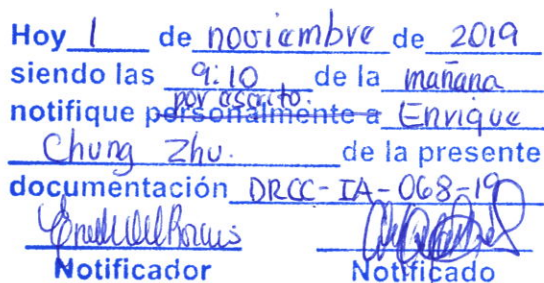 Hoy 1 de noviembre de 2019
siendo las 9:10 de la mañana
por escrito.
notifique personalmente a Enrique
Chung Zhu. de la presente
documentación DRCC-IA-068-19
Notificador Notificado